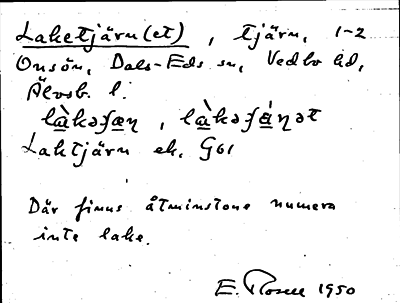 Laketjärn(et), tjärn, 1-2
Onsön, Dals-Eds sn, Vedbo hd,
Älvsb. l.
là̱kəʃæ̱n, là̱kəʃá̱ŋət
Laktjärn ek. G61
Där finns åtminstone numera
inte lake.
E. Rosell 1950